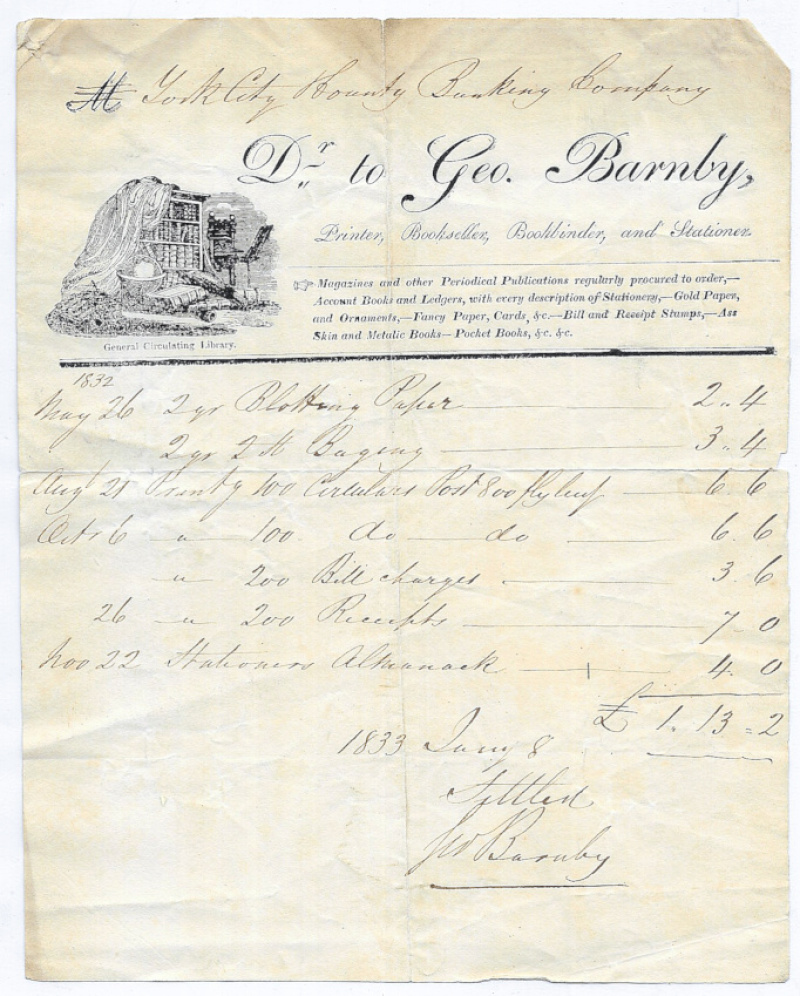 M York City County Banking Company
Dr to Geo. Barnby,
Printer, Bookseller, Bookbinder, and Stationer.
☞ Magazines and other Periodical Publications regularly procured to order,—
Account Books and Ledgers, with every description of Stationery,—Gold Paper,
and Ornaments,—Fancy Paper, Cards, &c.—Bill and Receipt Stamps,—Ass
Skin and Metalic Books—Pocket Books, &c. &c.
General Circulating Library.
1832
May 26 2 qr Blotting Paper 2 " 4
2 qr Baging 3 " 4
Aug 21 Printg 100 Circulars Post 8vo fly leaf 6 6
Octr 6 " 100 do do 6. 6
" 200 Bill charges 3. 6
26 " 200 Receipts 7 0
Nov 22 Stationers Almanack 4. 0
£ 1. 13 = 2
1833 Jany 8
Settled
Geo Barnby